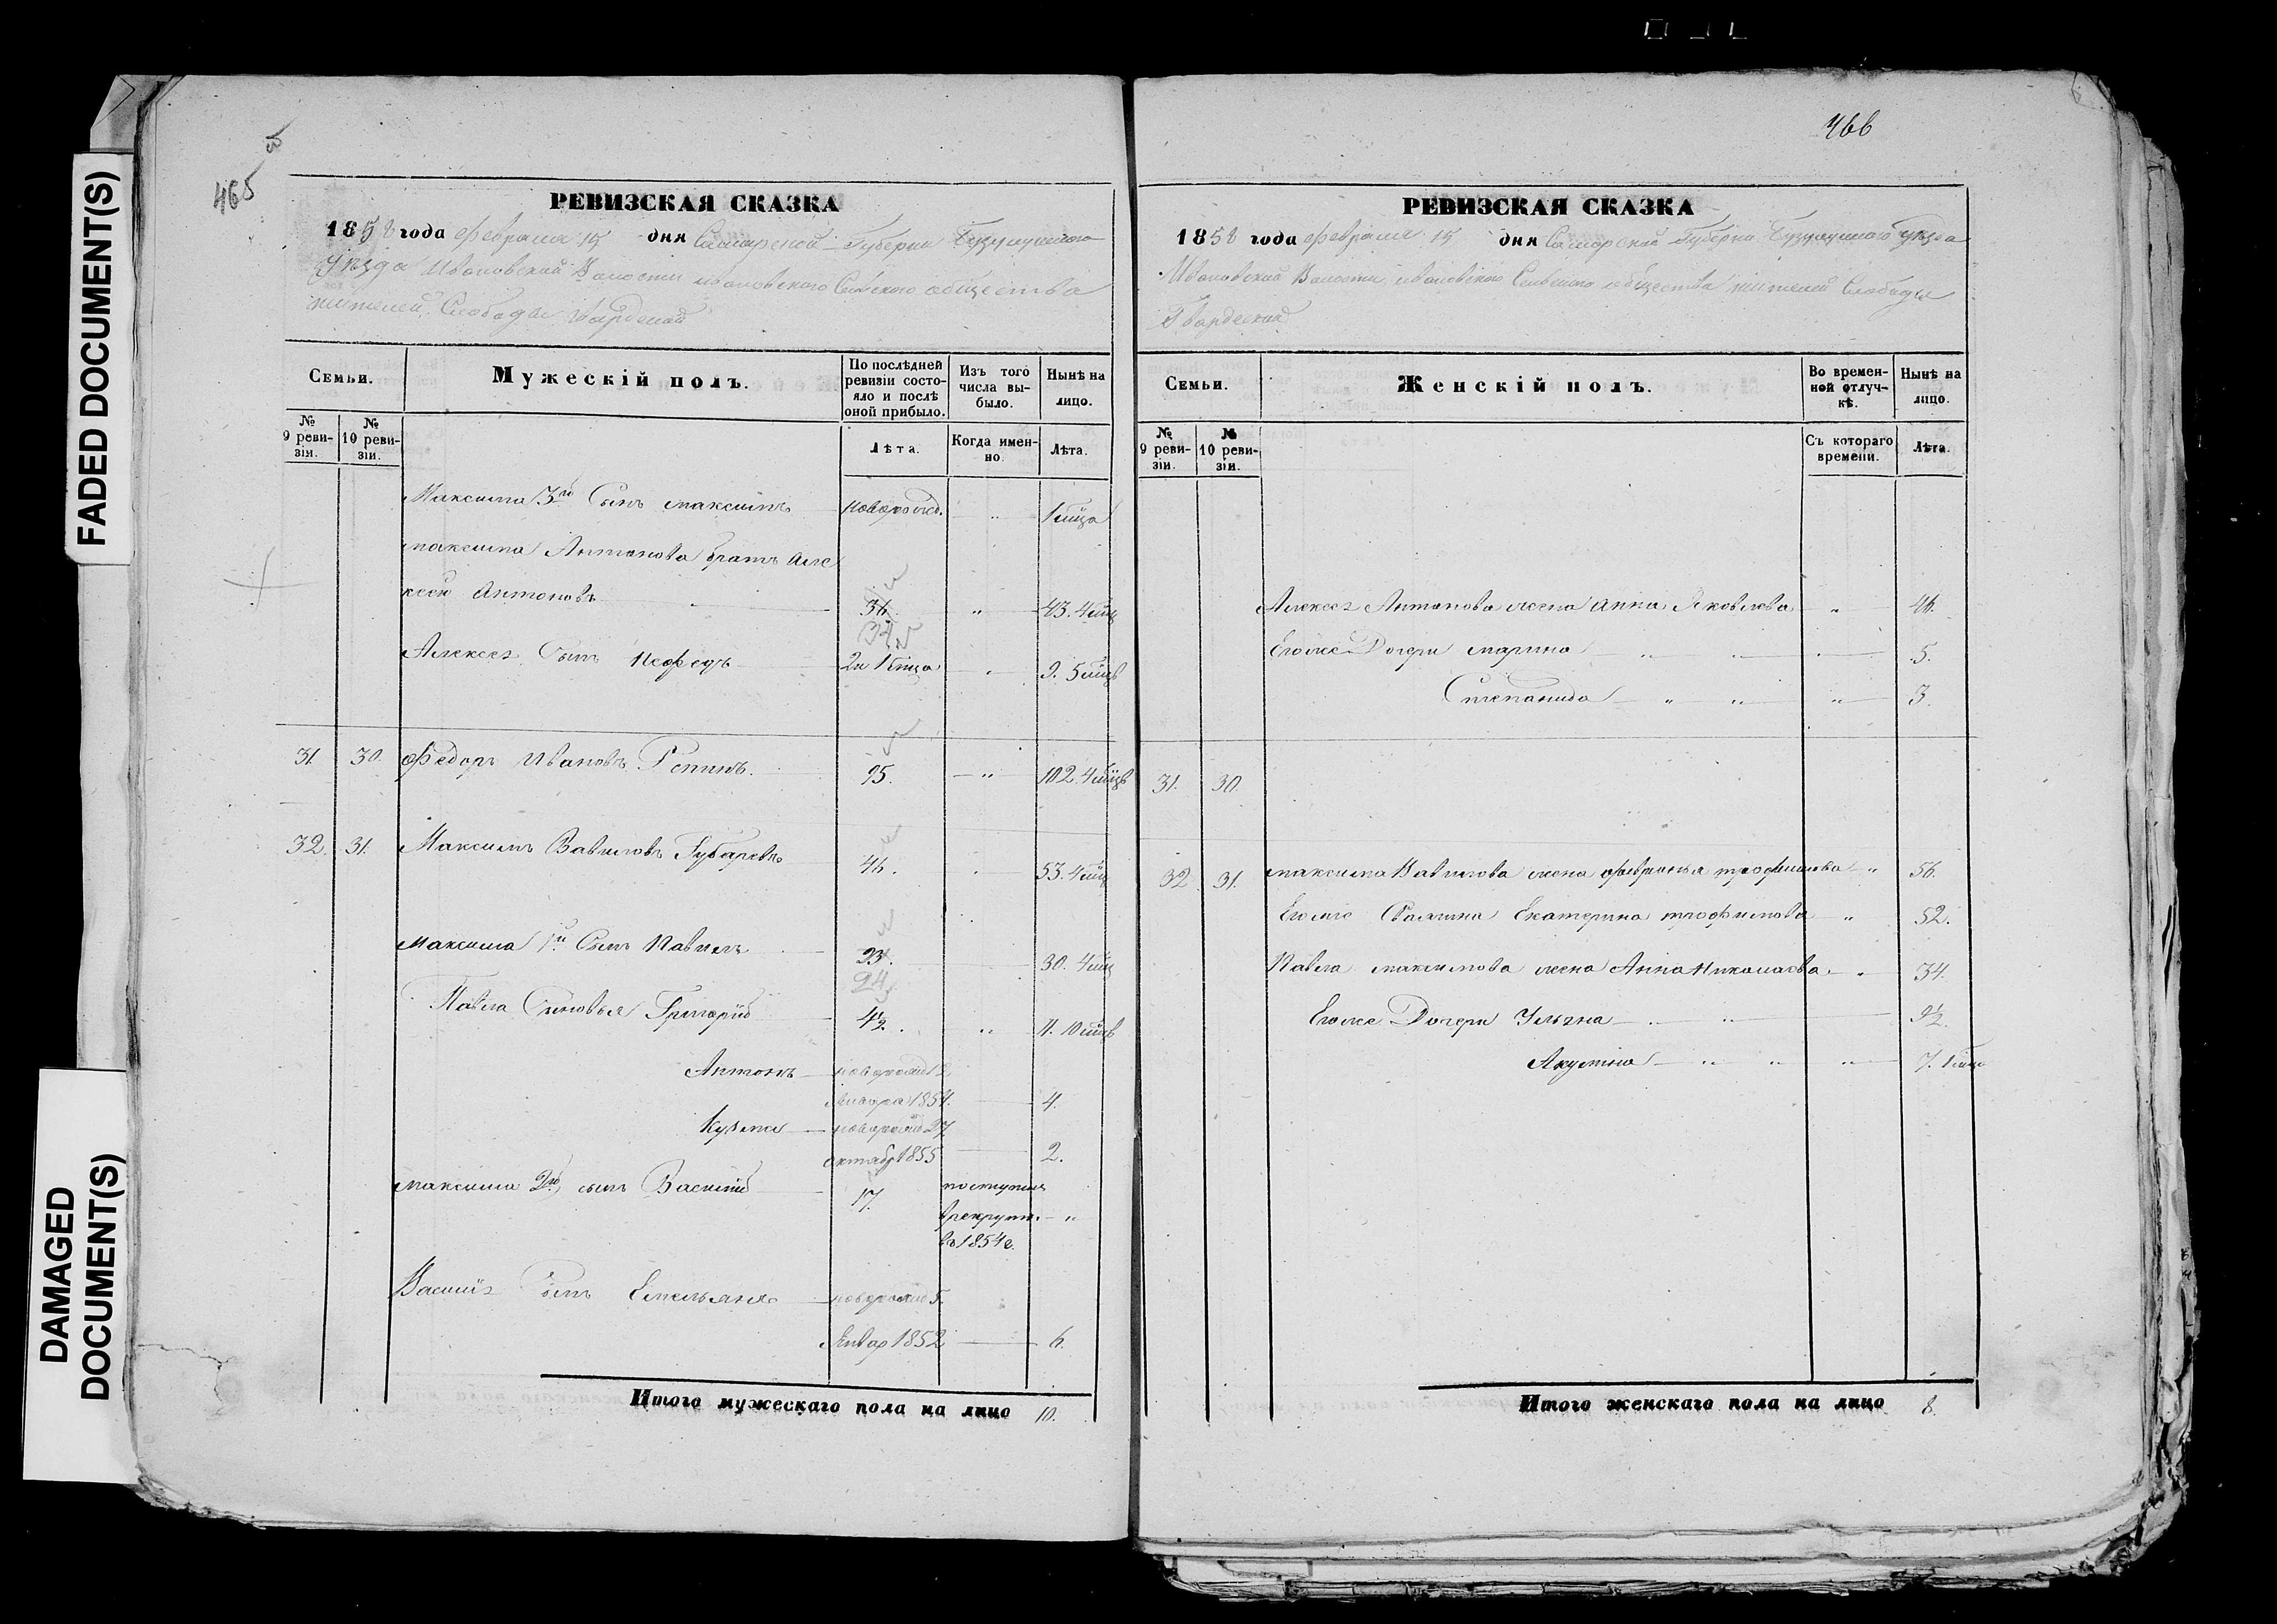 FADED DOCUMENT(S)
DAMAGED
DOCUMENT(S)
465
РЕВИЗСКАЯ СКАЗКА
1858 года февраля 15 дня Самарской Губерни Бузулукского
уѣзда Ивановской Волости ивановского Сельского общества
жителей Слободы
Семьи.
Мужескій полъ.
По послѣдней
ревизіи состо-
яло и послѣ
оной прибыло.
Изъ того
числа вы-
было.
Нынѣ на
лицо.
№
9 реви-
зіи.
№
10 реви-
зіи.
Лѣта.
Когда имен-
но.
Лѣта.
Максима 3й Сынъ максимъ новорожд. " 1 мца
максима Антонова братъ але
ксей Антоновъ 36. " 43. 4 мц
34
Алексея Сынъ Нефедъ 2 и 1 мца " 9. 5 мцв
31. 30. Федоръ Ивановъ Репинъ. 95. " 102. 4 мцв
32. 31. Максимъ Вавиловъ Губаревъ 46. " 53. 4 мц
Максима 1й Сынъ Павилъ 23. 30. 4 мц
24
Павла Сыновья Григорій 4½. " 11. 10 мцв
Антонъ новорожд 12
Января 1854. 4.
Кузма новорожд 27
октябр 1855 2.
максима 2й сынъ Василий 17. поступил
в рекруты "
въ 1854 г.
Василия Сынъ Емельянъ новорожд 5.
Январ 1852 6.
Итого мужескаго пола на лицо 10.
466
РЕВИЗСКАЯ СКАЗКА
1858 года февраля 15 дня Самарской Губерни Бузулукского уѣзда
Ивановской Волости ивановского Сельского общества жителей Слободы
Гвардеской
Семьи.
Женскій полъ.
Во времен-
ной отлуч-
кѣ.
Нынѣ на
лицо.
№
9 реви-
зіи.
№
10 реви-
зіи.
Съ котораго
времени.
Лѣта.
Алексея Антонова жена Анна Яковлева " 46.
Егоже Дочери марина " " 5.
Степанида " " " 3.
31. 30.
32 31. максима Вавилова жена февронья трофимова " 56.
Егоже Екатерина трофимова " 52.
Павла максимова жена Анна Николаева " 34.
Егоже Дочери Ульяна " " 9½.
Акулина " " " 7. 1 мца
Итого женскаго пола на лицо 8.